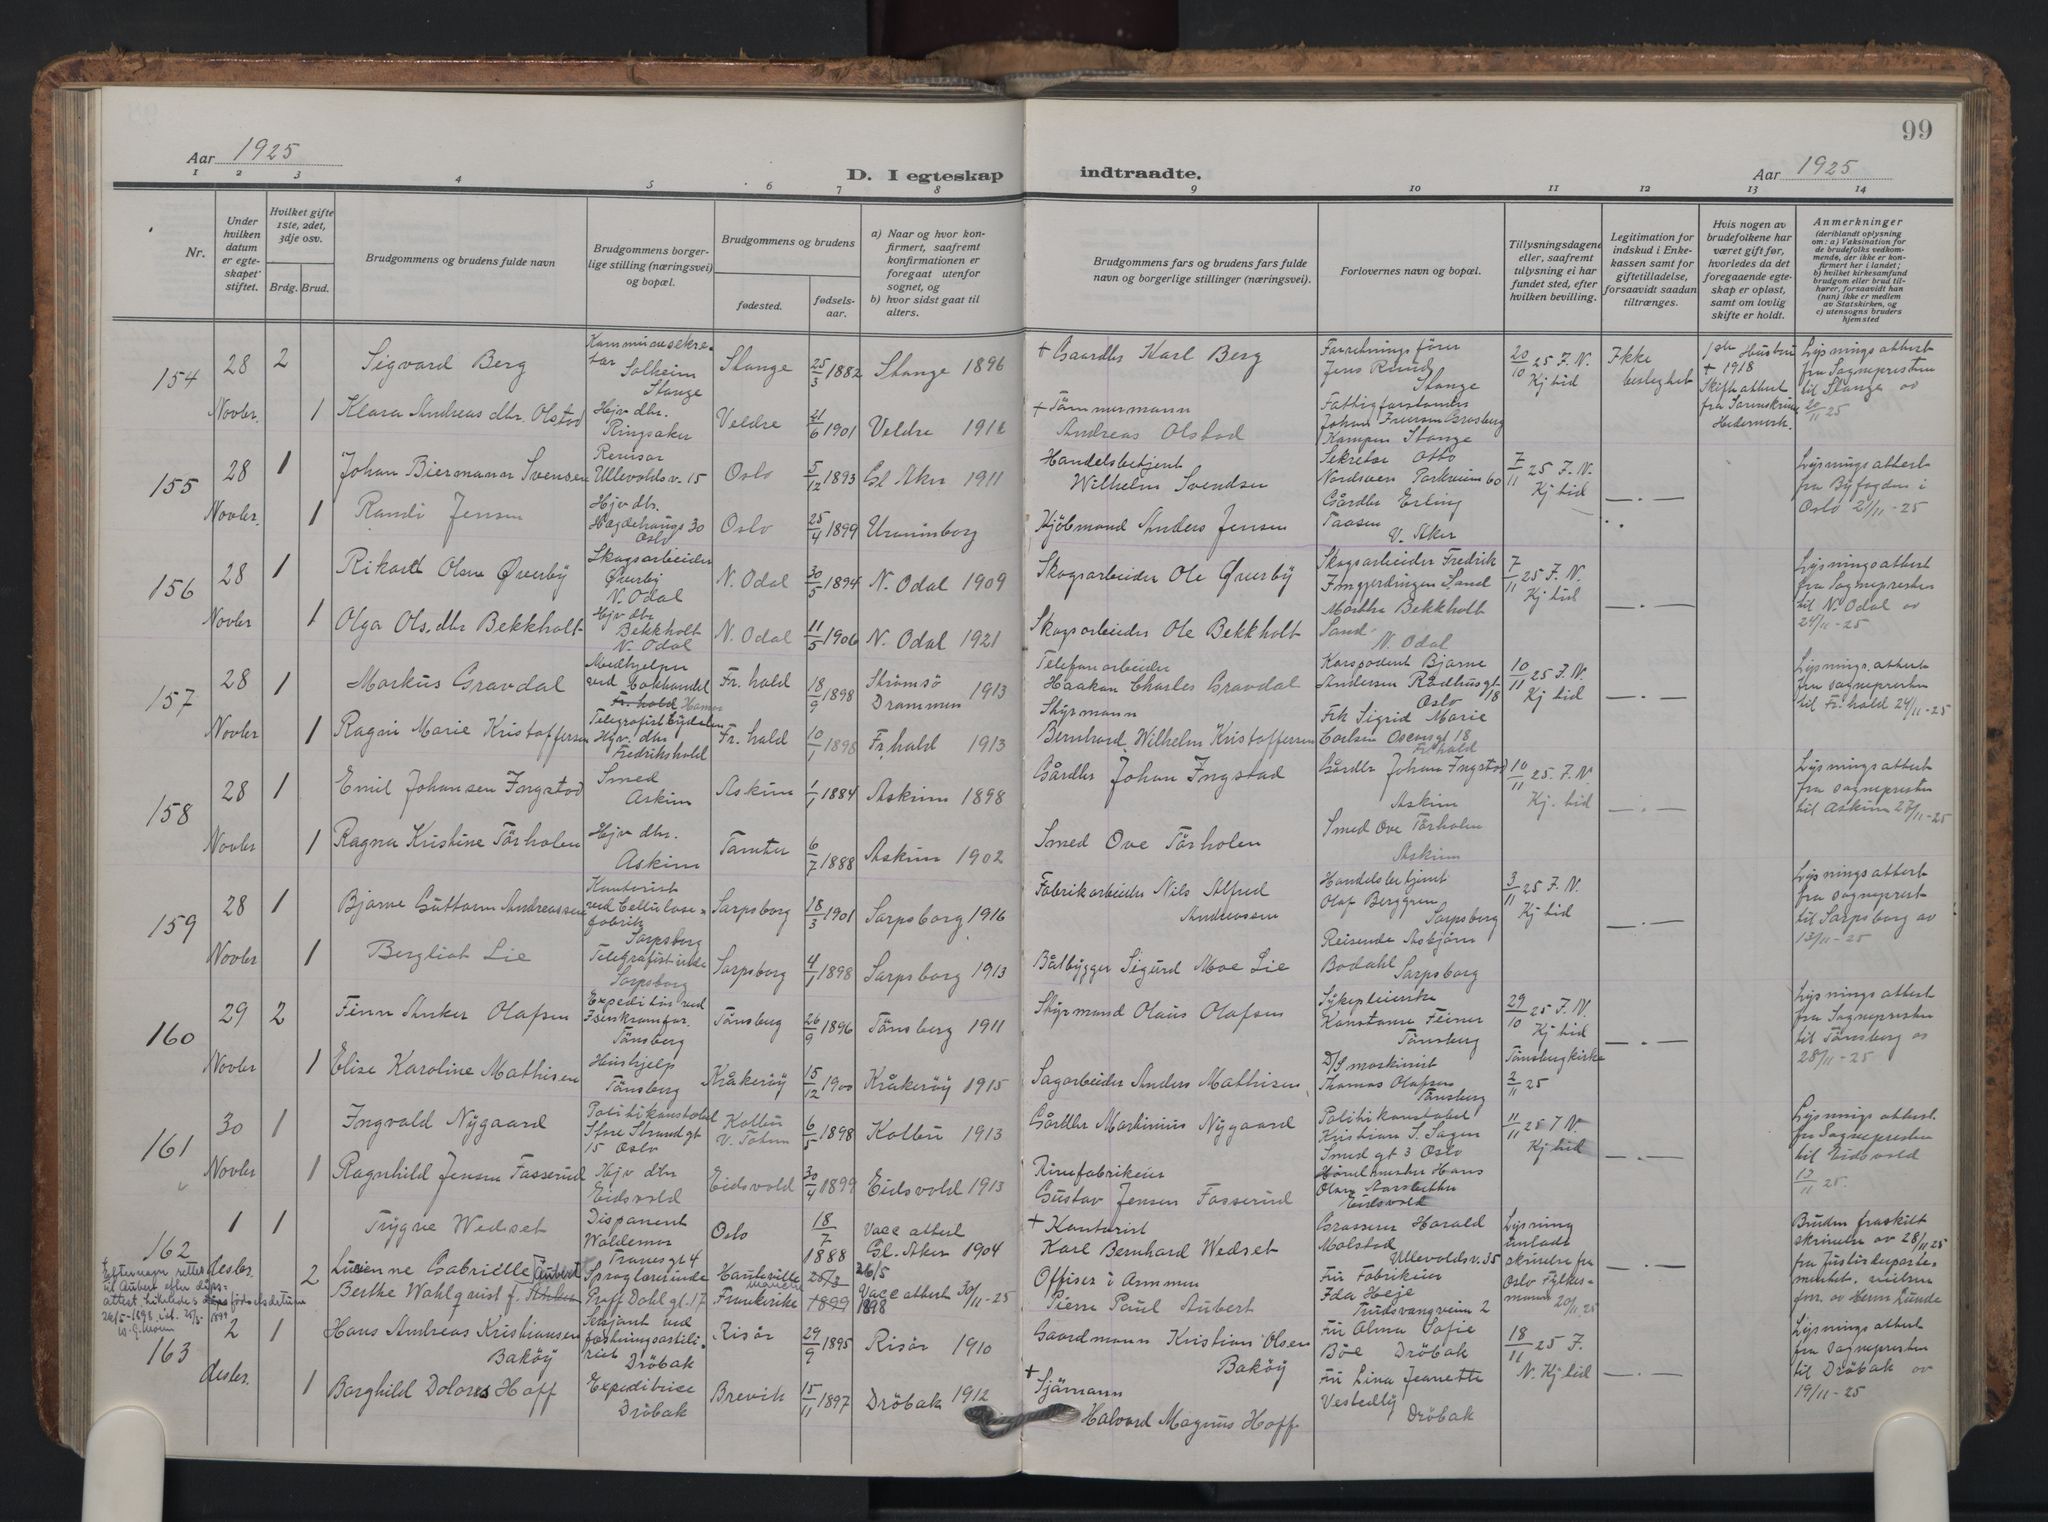 99
Aar 1925
D. I egteskap indtraadte.
Aar 1925
1 2 3 4 5 6 7 8 9 10 11 12 13 14
Nr.
Under hvilken datum er egteskapet stiftet.
Hvilket gifte 1ste, 2det, 3dje osv.
Brdg. Brud.
Brudgommens og brudens fulde navn
Brudgommens borgerlige stilling (næringsvei) og bopæl.
Brudgommens og brudens
fødested.
fødselsaar.
a) Naar og hvor konfirmert, saafremt konfirmationen er foregaat utenfor sognet, og
b) hvor sidst gaat til alters.
Brudgommens fars og brudens fars fulde navn og borgerlige stillinger (næringsvei).
Forlovernes navn og bopæl.
Tillysningsdagene eller, saafremt tillysning ei har fundet sted, efter hvilken bevilling.
Legitimation for indskud i Enkekassen samt for giftetilladelse, forsaavidt saadan tiltrænges.
Hvis nogen av brudefolkene har været gift før, hvorledes da det foregaaende egteskap er opløst, samt om lovlig skifte er holdt.
Anmerkninger
(deriblandt oplysning om: a) Vaksination for de brudefolks vedkommende, der ikke er konfirmert her i landet; b) hvilket kirkesamfund brudgom eller brud tilhører, forsaavidt han (hun) ikke er medlem av Statskirken, og c) utensogns bruders hjemsted
154 28 2 Sigvard Berg Kommunesekretær Solheim Stange Stange 25/3 1882 Stange 1896 + Gaardbr Karl Berg Forretningsfører Jens Rund Stange 20/10 25 F. N. Kj tid Ikke beslegtet 1ste Hustru + 1918 Skifteattest fra Sorenskriv Hedemark Lysningsattest fra Sognepresten til Stange av 20/11 25
Novbr. 1 Klara Andreasdbr. Olstad Hjv dbr. Ringsaker Veldre 21/6 1901 Veldre 1916 + Tømmermann Andreas Olstad Fattigforstander Johan Kampen Stange
155 28 1 Johan Biermann Svensen Revisor Ullevoldsv. 15 Oslo 5/12 1893 Gl Aker 1911 Handelsbetjent Wilhelm Svendsen Sekretær Otto Nordsveen Parkveien 60 7/11 25 F. N. Kj tid — . — Lysningsattest fra Byfogden i Oslo 21/11-25
Novbr. 1 Randi Jensen Hjv dbr. Hegdehaugs 30 Oslo Oslo 25/4 1899 Uranienborg Kjøbmand Anders Jensen Gårdbr Erling Taasen V. Aker
156 28 1 Rikard Olsen Øverby Skogsarbeider Øverby N. Odal N. Odal 30/5 1894 N. Odal 1909 Skogsarbeider Ole Øverby Skogsarbeider Fredrik Ingjerdingen Sand 7/11 25 F. N. Kj tid — . — Lysningsattest fra Sognepresten til N. Odal av 24/11-25
Novbr 1 Olga Ols.dbr Bekkholt Hjv dbr Bekkholt N. Odal N. Odal 11/5 1906 N. Odal 1921 Skogsarbeider Ole Bekkholt Marthe Bekkholt Sand N. Odal
157 28 1 Markus Gravdal Medhjelper ved Bokhandel Fr. hald Fr. hald 18/9 1898 Strømsø Drammen 1913 Telefonarbeider Haakon Charles Gravdal Korspodent Bjarne Andersen Rådhusgt 18 Oslo 10/11 25 F. N. Kj tid — . — Lysnings.attest fra sognepresten til Fr.hald 24/11-25
Novbr 1 Ragni Marie Kristoffersen Telegrafist Hjv. dbr Fredrikshald Fr. hald 10/1 1898 Fr. hald 1913 Styrmann Bernhard Wilhelm Kristoffersen Frk Sigrid Marie Carlsen Oscarsgt 18 Fr hald
158 28 1 Emil Johansen Ingstad Smed Askim Askim 1/1 1884 Askim 1898 Gårdbr Johan Ingstad Gårdbr Johan Ingstad Askim 10/11 25. F. N Kj. tid — . — Lysningsattest fra sognepresten til Askim 27/11-25
Novbr 1 Ragna Kristine Tårholen Hjv dbr. Askim Tomter 6/7 1888 Askim 1902 Smed Ove Tårholen Smed Ove Tårholen Askim
159 28 1 Bjarne Guttorm Andreassen Kontorist ved Cellulosefabrik Sarpsborg Sarpsborg 18/3 1901 Sarpsborg 1916 Fabrikarbeider Nils Alfred Andreassen Handelsbetjent Olaf Berggren Sarpsborg 3/11 25 F. N. Kj tid — . — Lysningsattest fra sogneprest til Sarpsborg av 13/11-25
Novbr 1 Bergliot Lie Telegrafistinde Sarpsborg Sarpsborg 4/1 1898 Sarpsborg 1913 Båtbygger Sigurd Moe Lie Reisende Asbjørn Bodahl Sarpsborg
160 29 2 Finn Anker Olafsen Expeditør ved Tønsberg Tønsberg 26/9 1896 Tønsberg 1911 Styrmand Olaus Olafsen Sykepleierske Konstanse Feiner Tønsberg 29/10 25 F. N. Kj tid — . — Lysningsattest fra Sognepresten til Tønsberg av 28/11-25
Novbr 1 Elise Karoline Mathisen Hushjelp Tønsberg Kråkerøy 15/12 1900 Kråkerøy 1915 Sagarbeider Anders Mathisen D/S maskinist Thomas Olafsen Tønsberg Tønsbergkirke 2/11 25
161 30 1 Ingvald Nygaard Politikonstabel Store Strandgt 15 Oslo Kolbu V. Toten 6/5 1898 Kolbu 1913 Gårdbr Martinius Nygaard Politikonstabel Kristian S. Sagen Smed gt 3 Oslo 11/11 25 F N. Kj tid — . — Lysningsattest. fra Sognepresten til Eidsvold 12/11 25.
Novbr 1 Ragnhild Jensen Fasserud Hjv dbr Eidsvold Eidsvold 30/4 1899 Eidsvold 1913 Gustav Jensen Fasserud Hans Olsen Eidsvold
162 1 1 Trygve Wedset Disponent Waldemar Tranes gt 4 Oslo 18/7 1888 Vacc attest Gl. Aker 1904 + Kontorist Karl Bernhard Wedset Grosserer Harald Molstad Ullevoldsv. 35 Lysning skrivelse fra Oslo Fylkesmann 20/11 25 Bruden fraskilt skrivelse av 28/11 25 fra Justisdepartementet.
Desbr. 2 Lucienne Gabriélle Aubert Berthe Wahlquist f. Sproglærerinde Proff Dahl gt. 17 Hauteville Frankrike 25/3 1899 26/5 1898 Vacc attest 30/11-25 Offiser i Armeen Pierre Paul Aubert Fru Fabrikeier Ida Heje Trudvangveien 2
Efternavn rettes til Aubert efter dåpsattest. Likeledes fødselsdatum 26/5-1898, ist. 25/3. 1899
163 2 1 Hans Andreas Kristiansen Bakøy Sersjant ved festningsartilleriet Drøbak Risør 29/9 1895 Risør 1910 Gaardmann Kristian Olsen Bakøy Fru Alma Sofie Bøe Drøbak 18/11 25 F. N. Kj tid — . — Lysningsattest fra sognepresten til Drøbak av 19/11-25
Desbr. 1 Borghild Dolores Hoff Expeditrice Drøbak Brevik 15/11 1897 Drøbak 1912 + Sjømann Halvard Magnus Hoff Fru Lina Jeanette Vestedly Drøbak